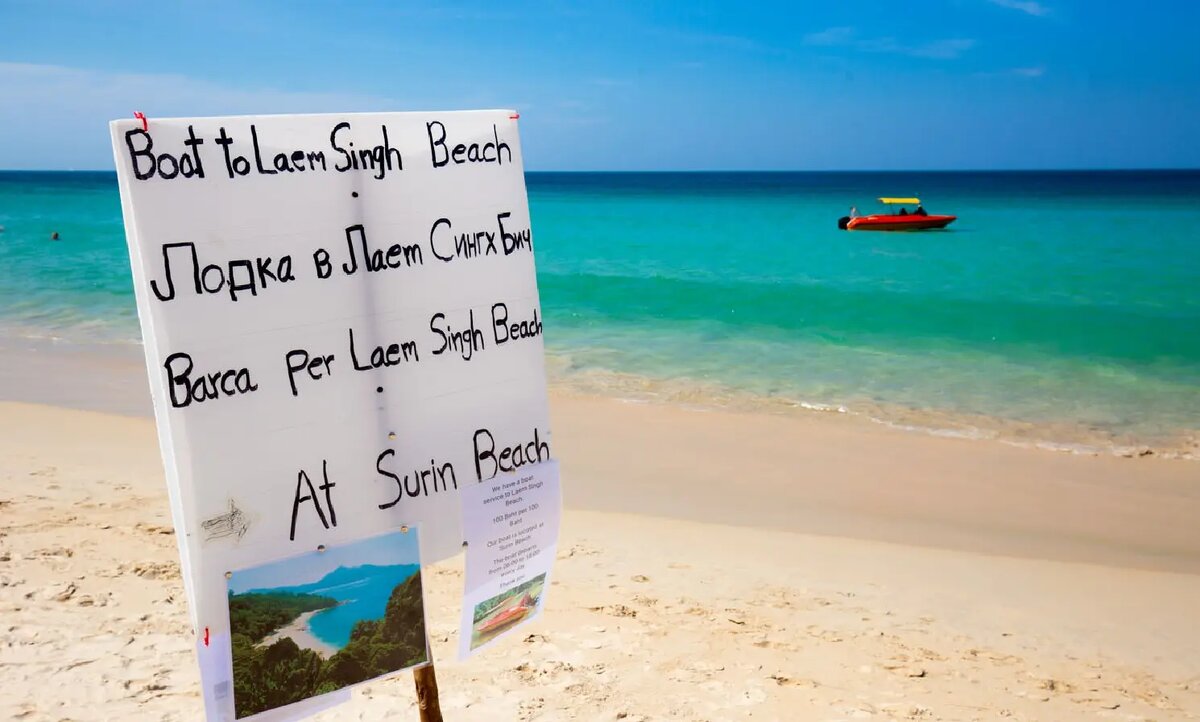 Boat to Laem Singh Beach
Лодка в Лаем Сингх Бич
Barca per Laem Singh Beach
At Surin Beach
We have a boat
service to Laem Singh
Beach
100 Baht per
Our boat is located at
Surin Beach
The boat
from
Thank you